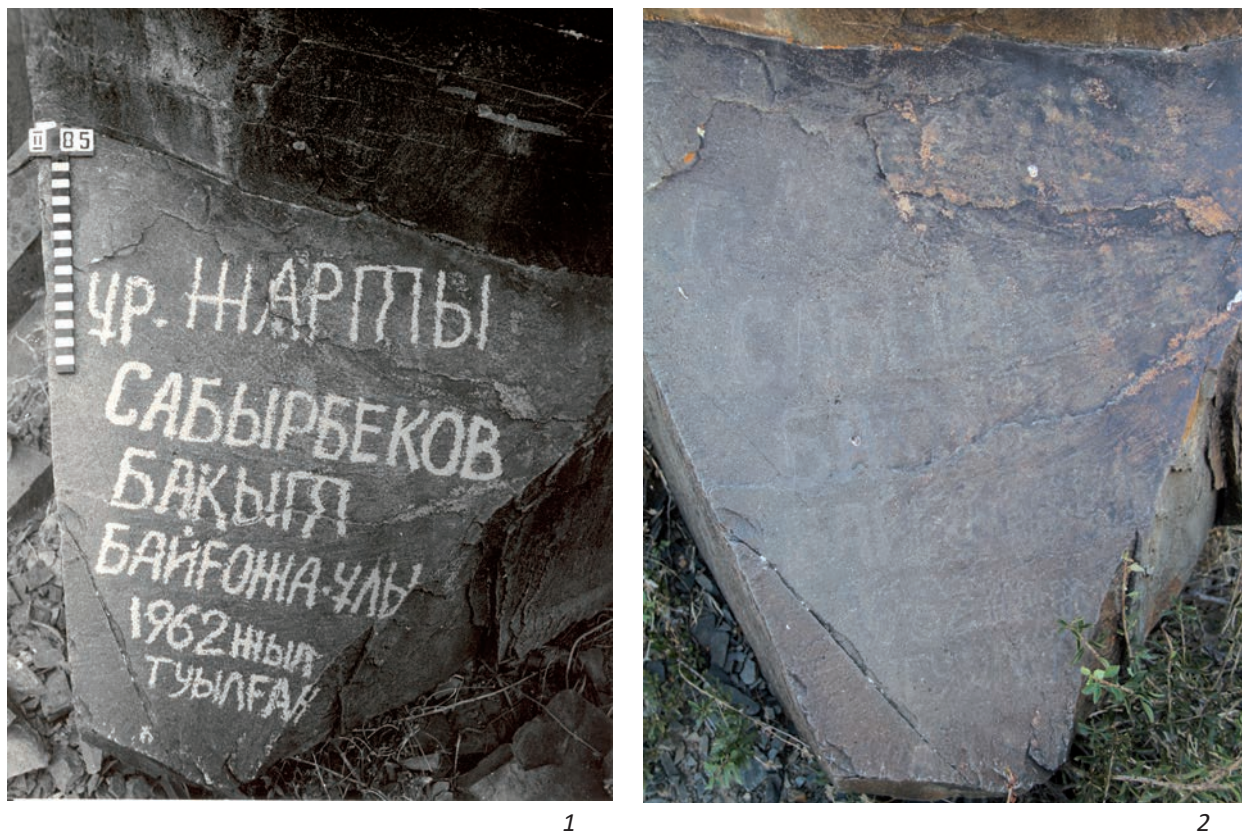 II 85
ұр. ЖАРТЫ
САБЫРБЕКОВ
БАҚЫТ
БАЙҒОЖА-ҰЛЫ
1962 ЖЫЛ
ТУЫЛҒАН
1
2